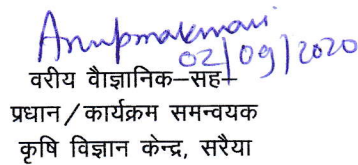 Anupmakumari
02/09/2020
वरीय वैाज्ञानिक–सह–
प्रधान/कार्यक्रम समन्वयक
कृषि विज्ञान केन्द्र, सरैया